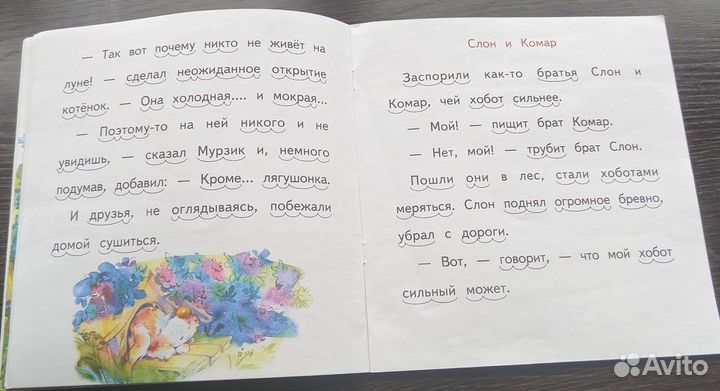 — Так вот почему никто не живёт на
луне! — сделал неожиданное открытие
котёнок. — Она холодная.... и мокрая...
— Поэтому-то на ней никого и не
увидишь, — сказал Мурзик и, немного
подумав, добавил: — Кроме... лягушонка.
И друзья, не оглядываясь, побежали
домой сушиться.
Слон и Комар
Заспорили как-то братья Слон и
Комар, чей хобот сильнее.
— Мой! — пищит брат Комар.
— Нет, мой! — трубит брат Слон.
Пошли они в лес, стали хоботами
меряться. Слон поднял огромное бревно,
убрал с дороги.
— Вот, — говорит, — что мой хобот
сильный может.
Avito